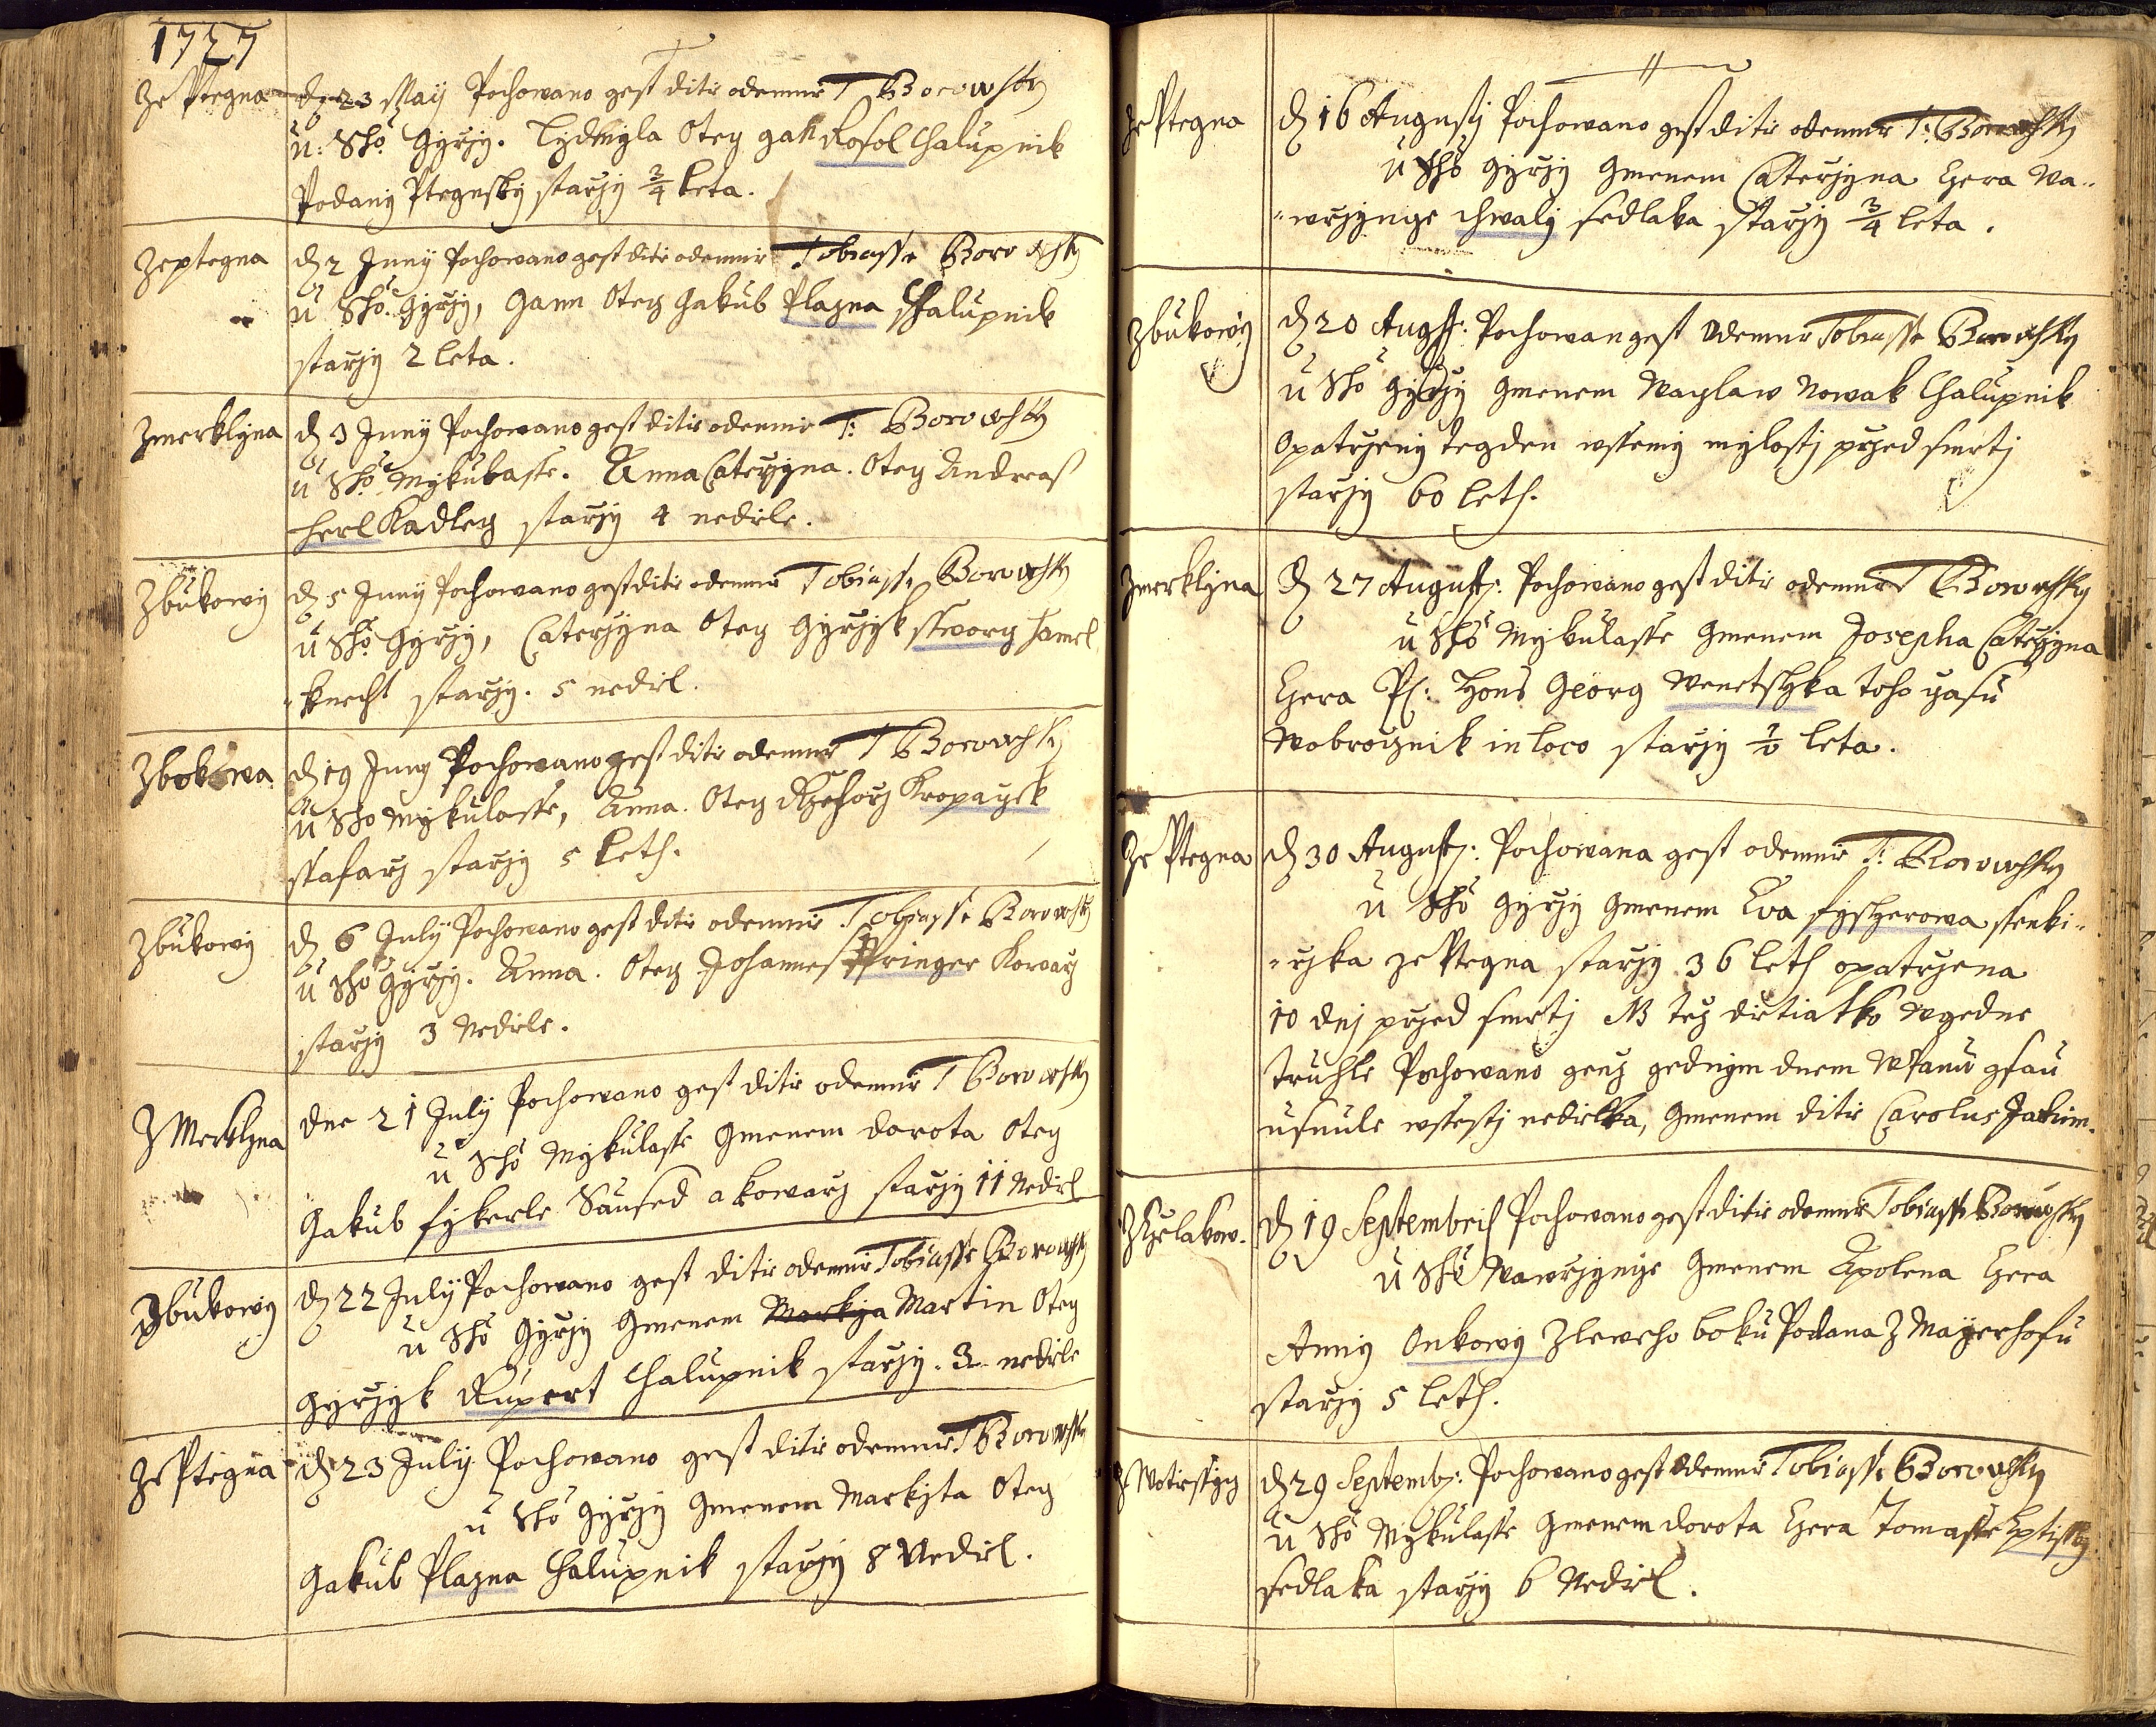 1727
Ze Ptegna
d 23 Maÿ Pochowano gest ditie odemnie T Borowsky
u: Sho Gyrzy. Lydmyla Oteg Jan Rosol Chalupnik
Podany Ptegnsky starzy 3/4 leta.
Zeptegna
d 2 Juny Pochowano gest ditie odemnie Tobiasse Borowsky
u Sho. Gyrzy, Gann Oteg Gakub Plazna Chalupnik
starzy 2 leta.
Zmerklyna
d 3 Juny Pochowano gest ditie odemnie T: Borowsky
u Sho Mykulasse. Anna Caterzyna. Oteg Andreas
Herl Kadleg starzy 4 nediele.
Zbukowy
d 5 Juny Pochowano gest ditie odemnie Tobiasse Borowsky
u Sho Gyrzy, Caterzyna Oteg Gyrzyk Sworg
knecht starzy. 5 nediel.
Zbokowa
d 19 Juny Pochowano gest ditie odemnie T Borowsky
u Sho Mykulasse, Anna. Oteg Rzehorz Kropaczek
ssafarz starzy 5 leth.
Zbukowy
d 6 July Pochowano gest ditie odemnie Tobiasse Borowsky
u Sho Gyrzy. Anna. Oteg Johannes Springer Kowarz
starzy 3 Nediele.
Z Merklyna
dne 21 July Pochowano gest ditie odemnie T Borowsky
u Sho Mykulasse Gmenem dorota Oteg
Gakub fykerle Saused a kowarz starzy 11 Nediel
Zbukowy
d 22 July Pochowano gest ditie odemnie Tobiasse Borowsky
u Sho Gyrzy Gmenem Martin Oteg
Gyrzyk Rupert Chalupnik starzy. 3 nediele
Ze Ptegna
d 23 July Pochowano gest ditie odemnie T Borowsky
u Sho Gyrzy Gmenem Markyta Oteg
Gakub Plazna Chalupnik starzy 8 Nediel.
Ze Ptegna
d 16 Augusti Pochowano gest ditie odemnie T: Borowsky
u Sho Gyrzy Gmenem Caterzyna Czera Wa-
-wrzynge chwaly sedlaka starzy 3/4 leta.
Zbukowy
d 20 August: Pochowan gest Odemnie Tobiasse Borowsky
u Sho Gyrzy Gmenem Waglaw Nowak Chalupnik
Opatrzeny tegden wssemy mylosti przed smrti
starzy 60 leth.
Zmerklyna
d 27 August: Pochowano gest ditie odemnie T Borowsky
u Sho Mykulasse Gmenem Josepha Caterzyna
Czera P: Hons Georg Wenetschka toho czasu
Wobrocznik in loco starzy leta.
Ze Ptegna
d 30 August: Pochowana gest odemnie T: Borowsky
u Sho Gyrzy Gmenem Eva fyscherowa ssenki-
-rzka ze Ptegna starzy 36 leth opatrzena
10 dnj przed smrtj NB tez dietiatko w gedne
truhle Pochowano genz gednym dnem w Panu gsau
usnule w ssesti nedielka, Gmenem ditie Carolus Jachim.
d 19 Septembris Pochowano gest ditie odemnie Tobiasse Borowsky
u Sho Wawrzynge Gmenem Apolena Czera
Anny Onkowy Zleweho boku Podana Z Mayerhofu
starzy 5 leth.
d 29 Septemb: Pochowano gest Odemnie Tobiasse Borowsky
u Sho Mykulasse Gmenem dorota Czera Tomasse
sedlaka starzy 6 Nediel.